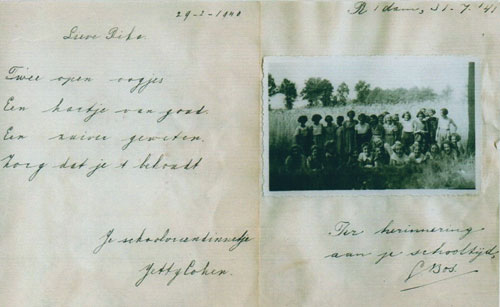 29-2-1940
Lieve Rika.
Twee open oogjes
Een hartje van goud.
Een zuiver geweten.
Zorg dat je 't behoudt
Je schoolvriendinnetje
Jetty Cohen.
R'dam, 31-7-'41
Ter herinnering
aan je schooltijd,
Bos.